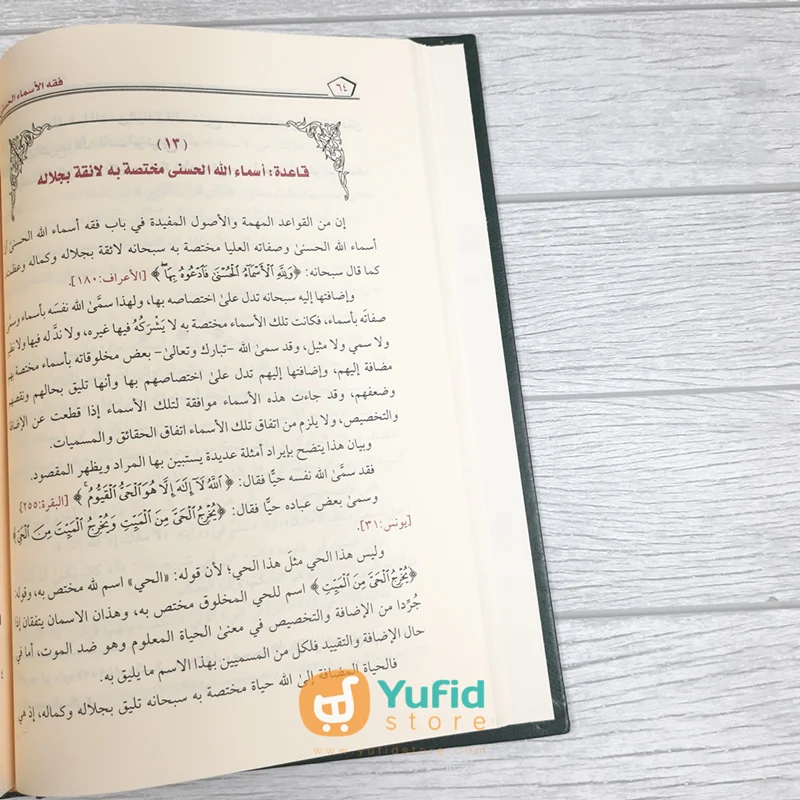 فقه الأسماء الحسنى
٦٤
(١٣)
قاعدة: أسماء الله الحسنى مختصة به لائقة بجلاله
إن من القواعد المهمة والأصول المفيدة في باب فقه أسماء الله الحسنى أن
أسماء الله الحسنىٰ وصفاته العليا مختصة به سبحانه لائقة بجلاله وكماله وعظمته
كما قال سبحانه: ﴿وَلِلَّهِ الْأَسْمَاءُ الْحُسْنَىٰ فَادْعُوهُ بِهَا﴾ [الأعراف: ١٨٠].
وإضافتها إليه سبحانه تدل علىٰ اختصاصه بها، ولهذا سمَّىٰ الله نفسَه بأسماء وسمَّىٰ
صفاتَه بأسماء، فكانت تلك الأسماء مختصة به لا يَشْرَكُهُ فيها غيره، ولا ندَّ له فيها ولا نظير
ولا سمي ولا مثيل، وقد سمىٰ الله -تبارك وتعالىٰ- بعض مخلوقاته بأسماء مختصة بهم
مضافة إليهم، وإضافتها إليهم تدل علىٰ اختصاصهم بها وأنها تليق بحالهم ونقصهم
وضعفهم، وقد جاءت هذه الأسماء موافقة لتلك الأسماء إذا قطعت عن الإضافة
والتخصيص، ولا يلزم من اتفاق تلك الأسماء اتفاق الحقائق والمسميات.
وبيان هذا يتضح بإيراد أمثلة عديدة يستبين بها المراد ويظهر المقصود.
فقد سمَّىٰ الله نفسه حيًّا فقال: ﴿اللَّهُ لَا إِلَٰهَ إِلَّا هُوَ الْحَيُّ الْقَيُّومُ﴾ [البقرة: ٢٥٥].
وسمىٰ بعض عباده حيًّا فقال: ﴿يُخْرِجُ الْحَيَّ مِنَ الْمَيِّتِ وَيُخْرِجُ الْمَيِّتَ مِنَ الْحَيِّ﴾
[يونس: ٣١].
وليس هذا الحي مثلَ هذا الحي؛ لأن قوله: «الحي» اسم لله مختص به، وقوله:
﴿يُخْرِجُ الْحَيَّ مِنَ الْمَيِّتِ﴾ اسم للحي المخلوق مختص به، وهذان الاسمان يتفقان إذا
جُرِّدا من الإضافة والتخصيص في معنىٰ الحياة المعلوم وهو ضد الموت، أما في
حال الإضافة والتقييد فلكل من المسميين بهذا الاسم ما يليق به.
فالحياة المضافة إلىٰ الله حياة مختصة به سبحانه تليق بجلاله وكماله، إذ هي
Yufid
store
www.yufidstore.com